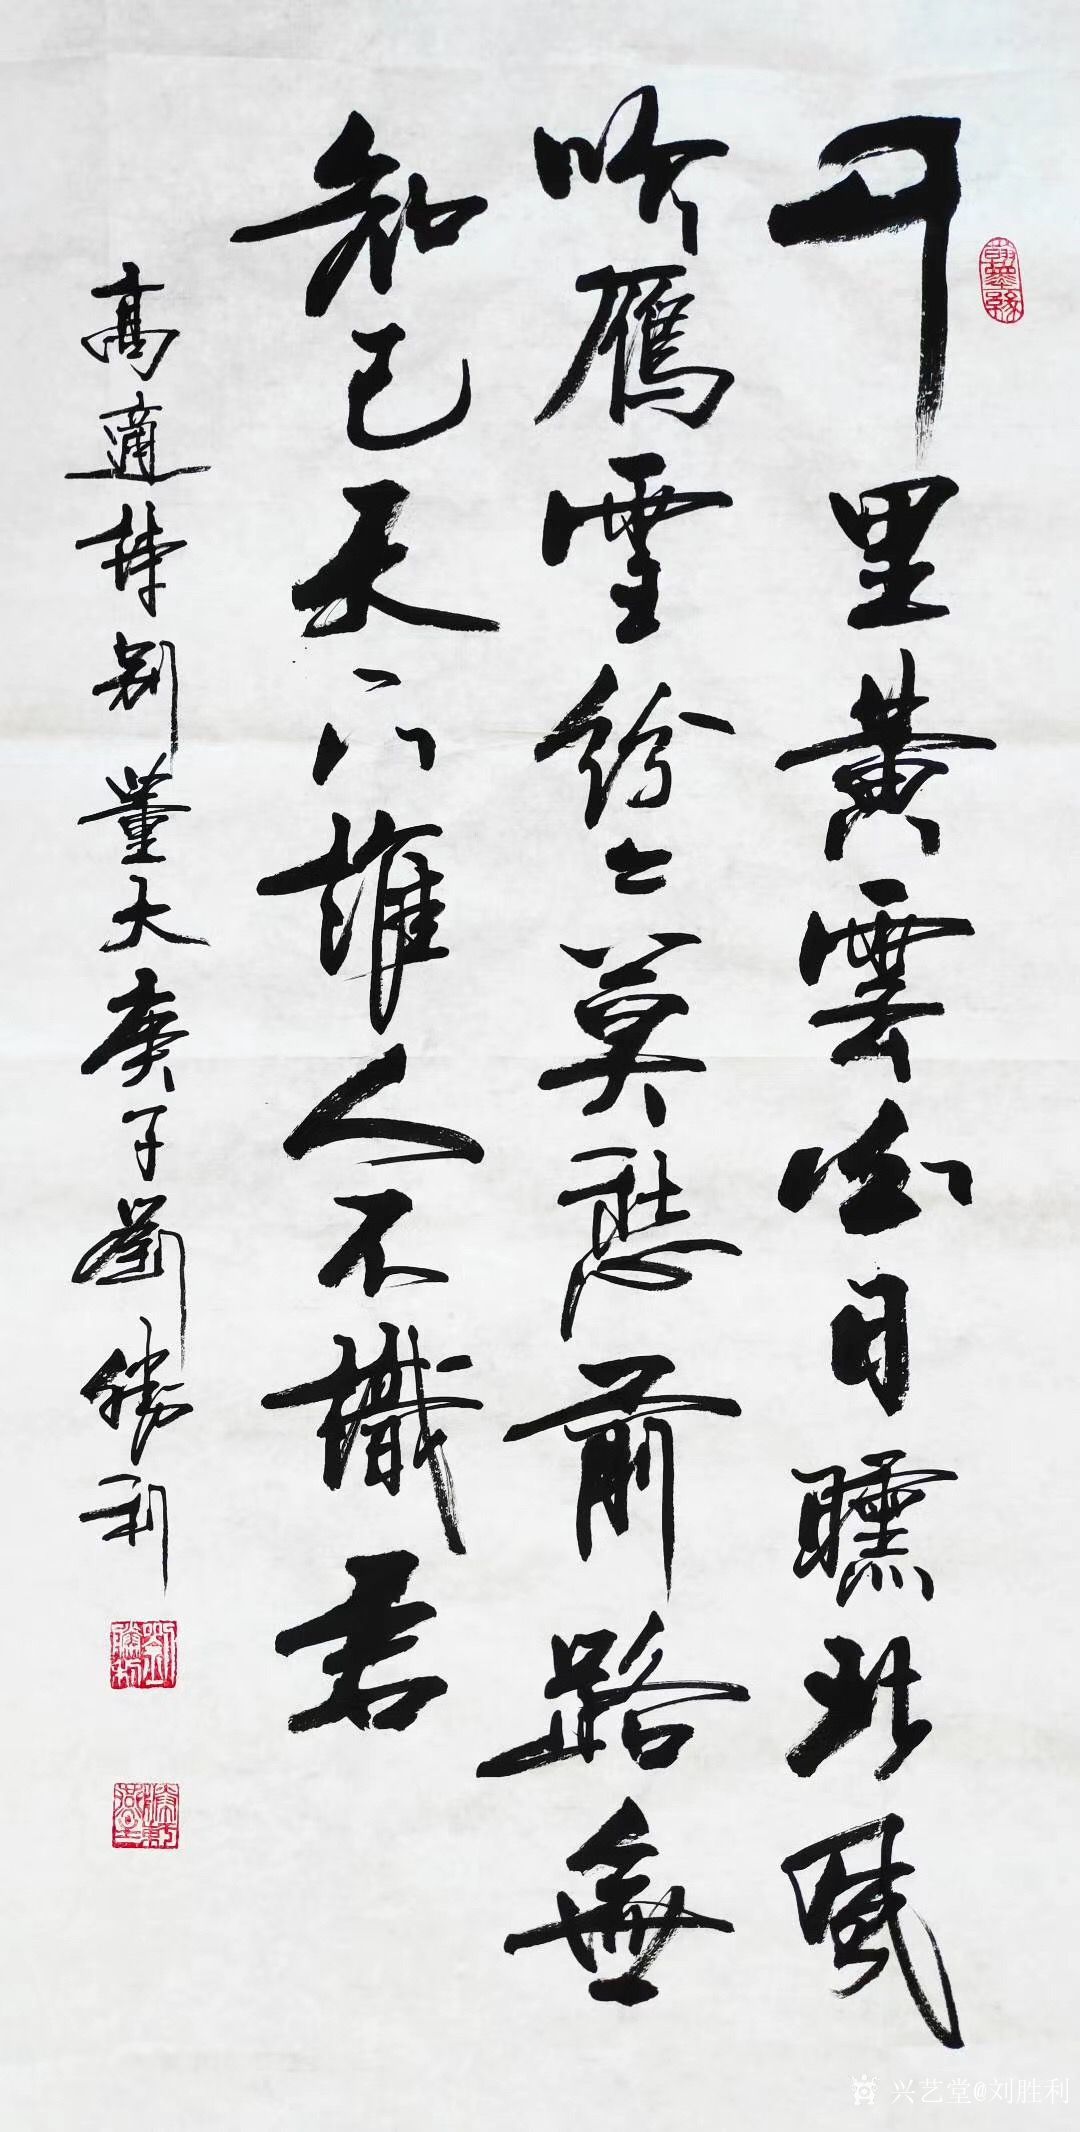 千里黃雲白日曛北風
吹鴈雪紛々莫愁前路無
知己天下誰人不識君
高適詩別董大庚子劉勝利
翰墨緣
劉勝利
兴艺堂@刘胜利